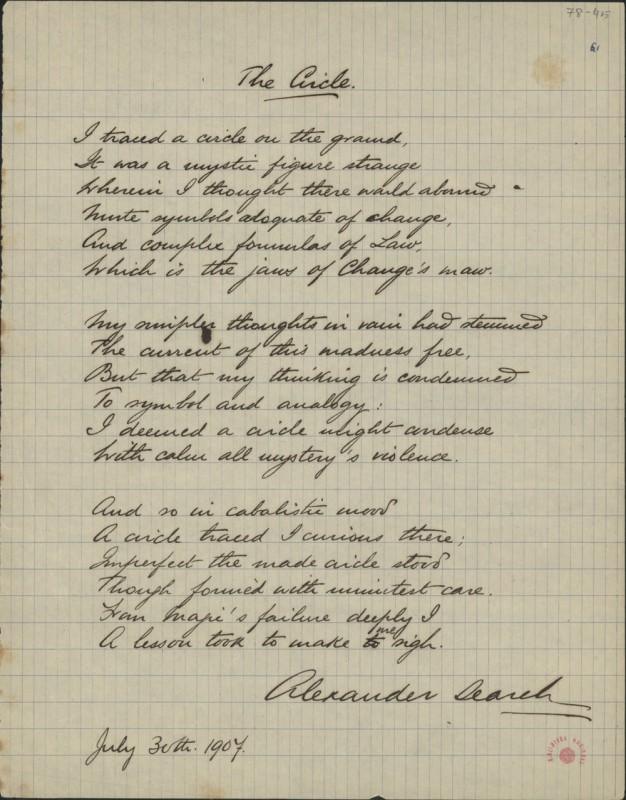 78-45
61
The Circle.
I traced a circle on the ground,
It was a mystic figure strange
Wherein I thought there would abound
Mute symbols adequate of change,
And complex formulas of Law,
Which is the jaws of Change's maw.
My simpler thoughts in vain had stemmed
The current of this madness free,
But that my thinking is condemned
To symbol and analogy:
I deemed a circle might condense
With calm all mystery's violence.
And so in cabalistic mood
A circle traced I curious there;
Imperfect the made circle stood
Though formèd with minutest care.
From Magic's failure deeply I
A lesson took to make me sigh.
Alexander Search
July 30th. 1907.